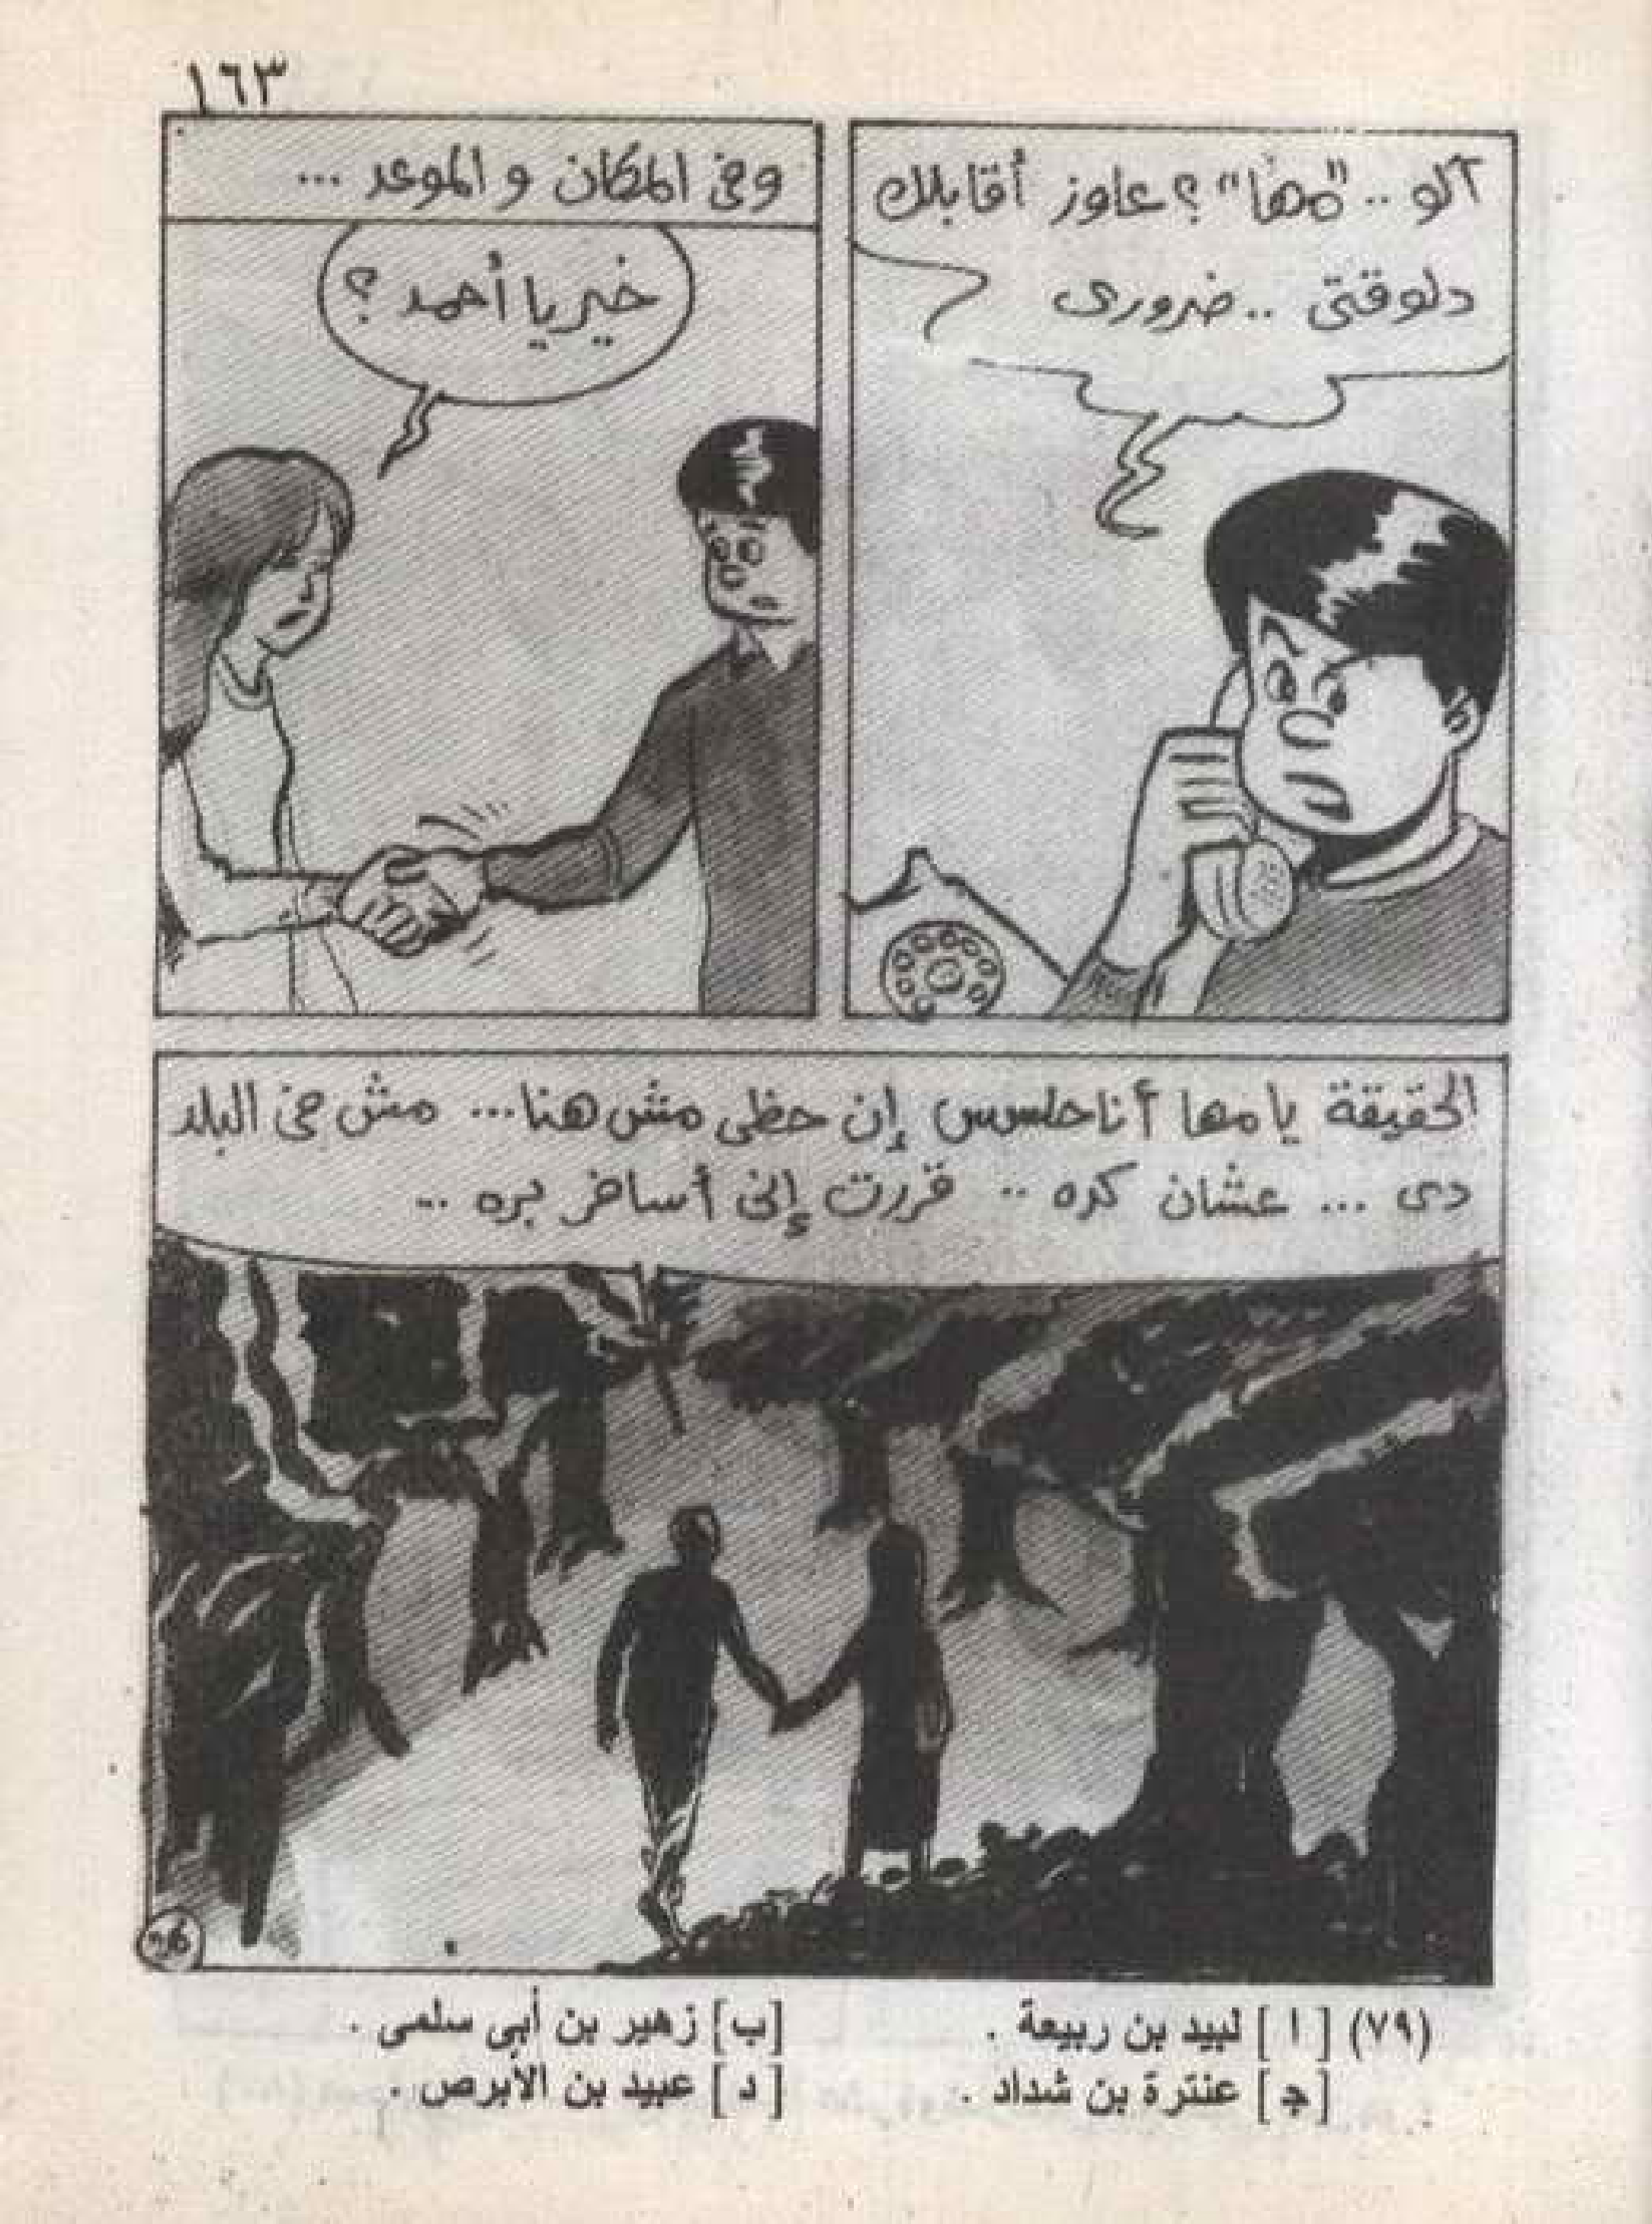 ١٦٣
آلو .. "مها"؟ عاوز أقابلك
دلوقتى .. ضرورى
وفى المكان و الموعد ...
خير يا أحمد ؟
الحقيقة يا مها أنا حاسس إن حظى مش هنا ... مش فى البلد
دى ... عشان كده .. قررت إنى أسافر بره ..
(٧٩) [ ا ] لبيد بن ربيعة . [ب] زهير بن أبى سلمى .
[جـ] عنترة بن شداد . [ د ] عبيد بن الأبرص .